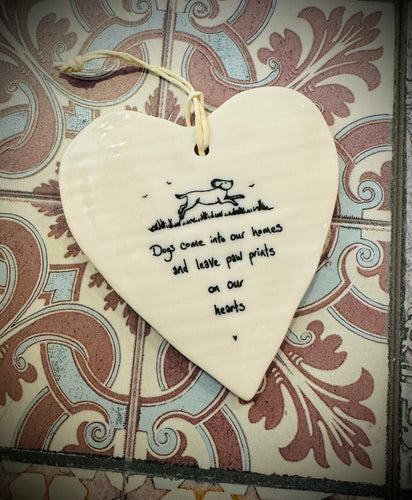 Dogs come into our homes
and leave paw prints
on our
hearts